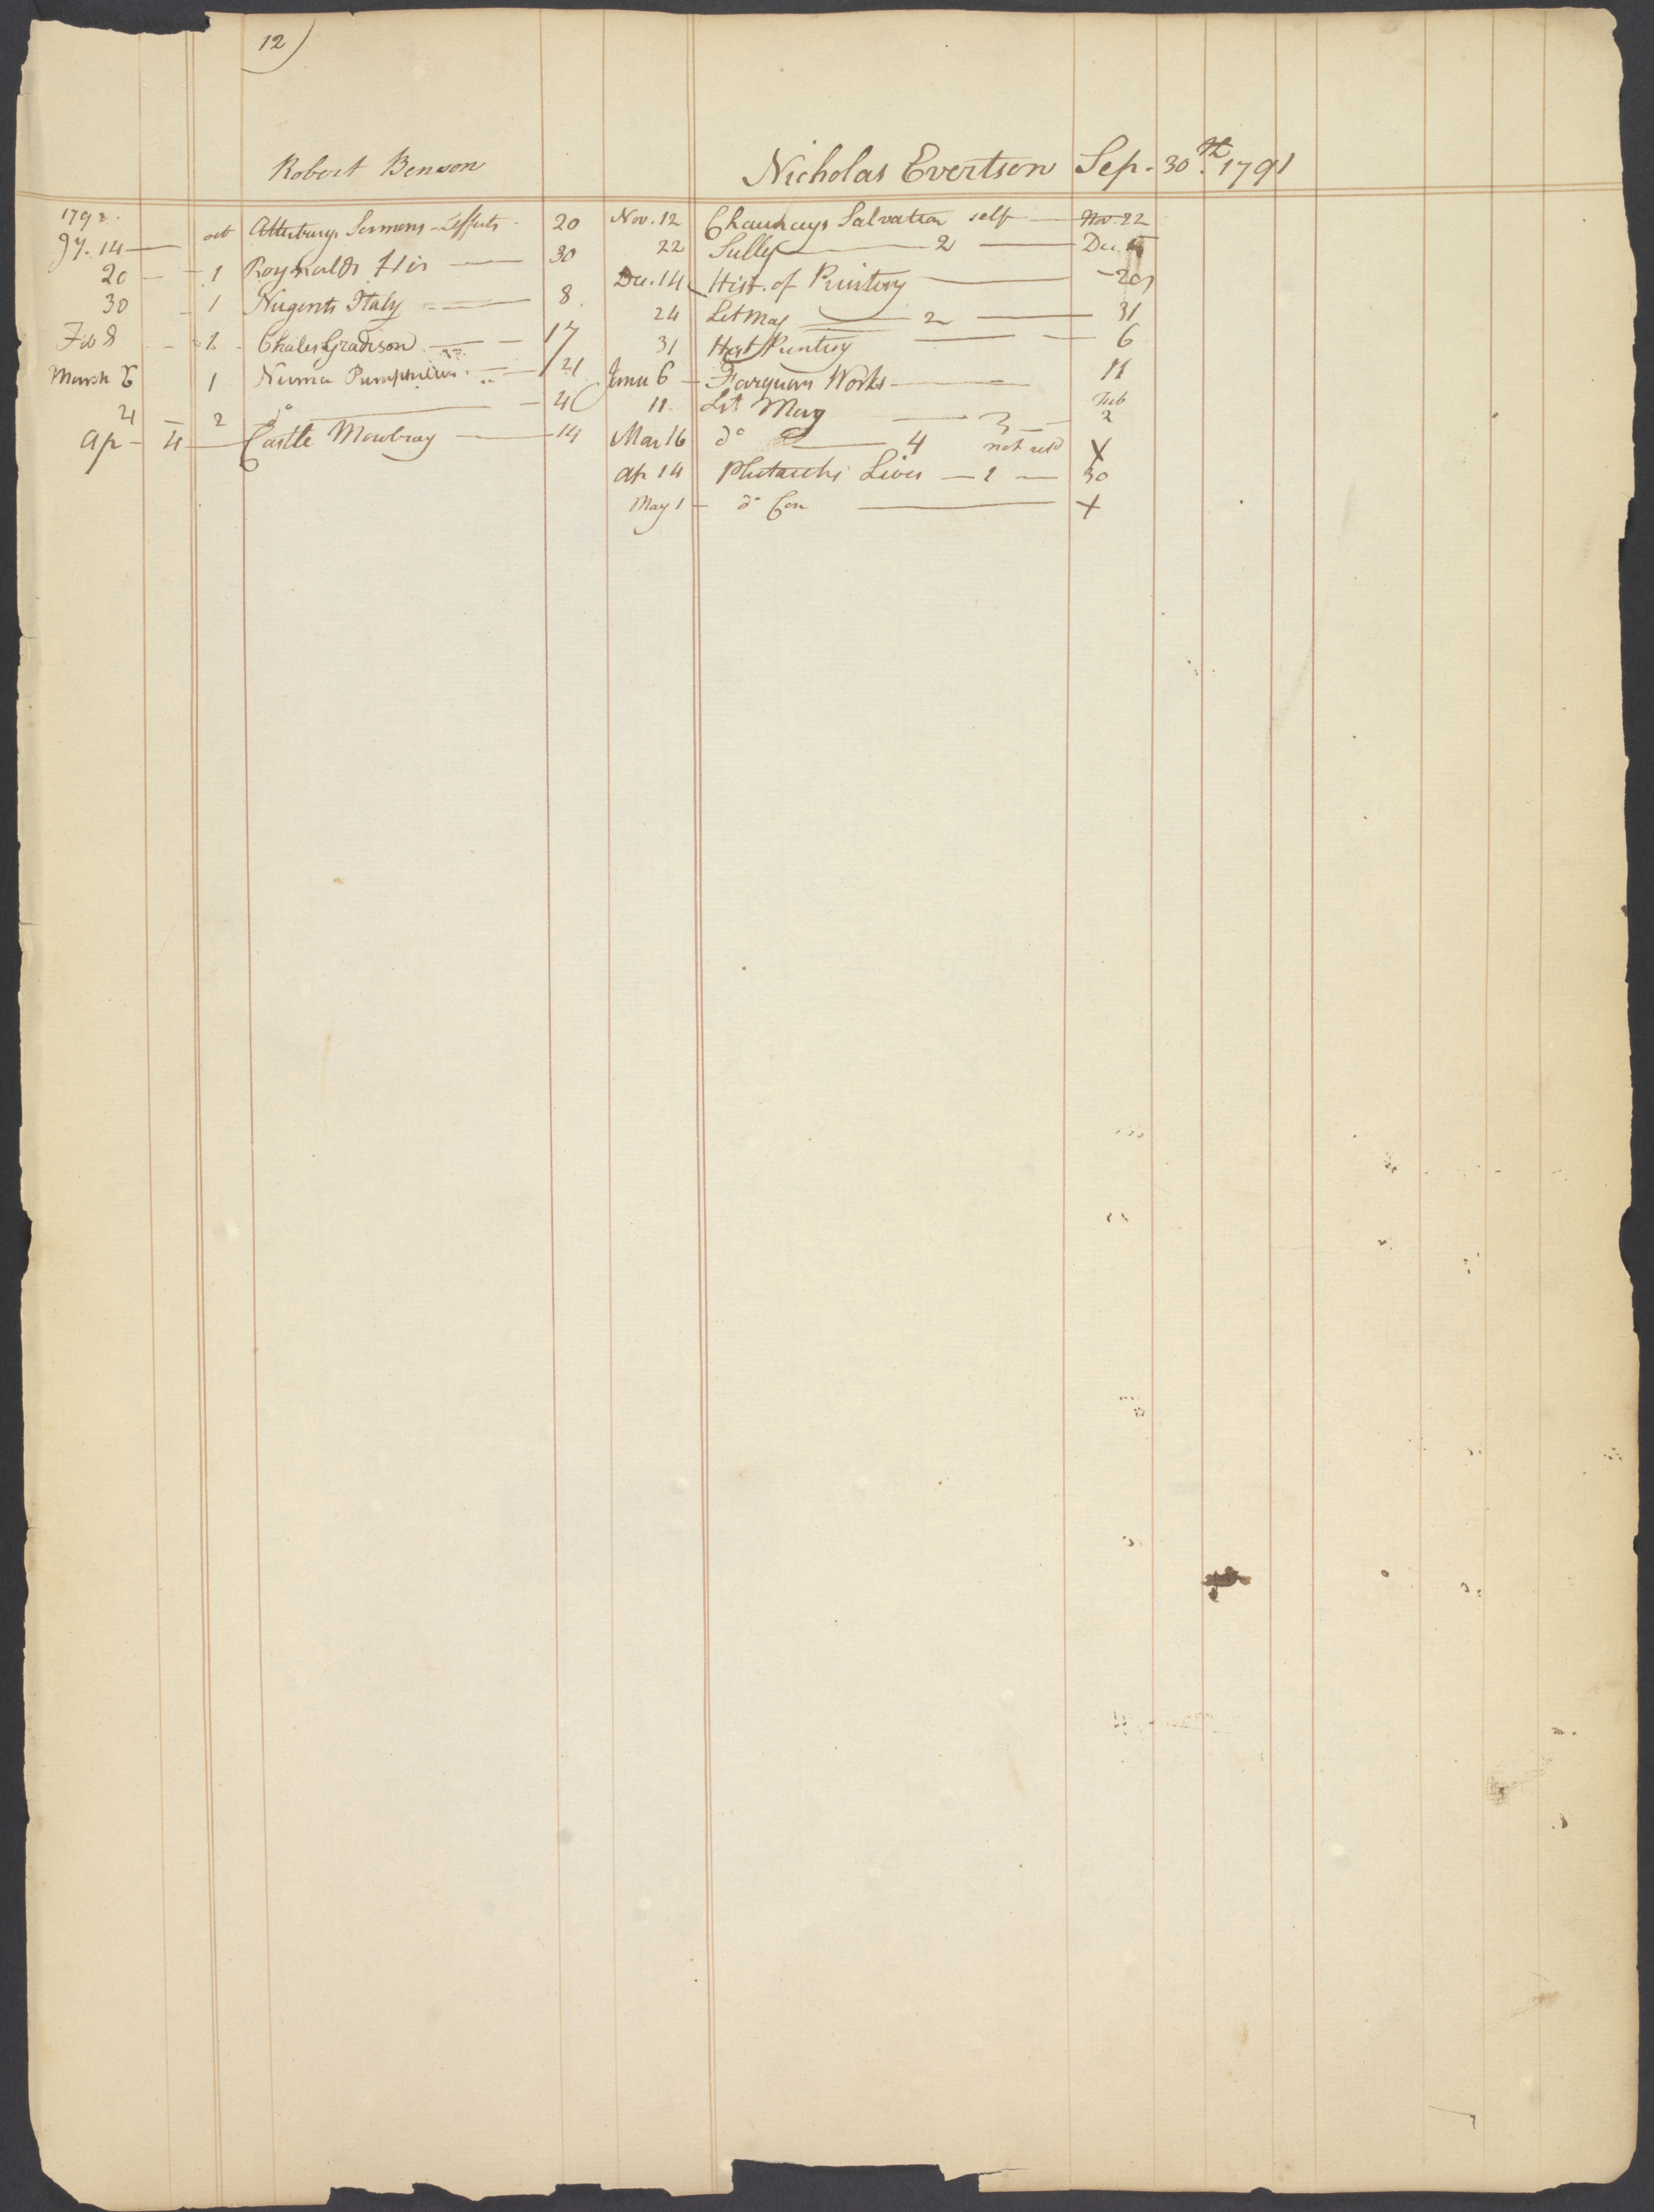 12)
Robert Benson
1792.
Jy. 14 — oct Atterburys Sermons - Effects - 20
20 — 1 Raynolds His — 30
30 — 1 Nugents Italy — 8.
Feb 8 — 1 - Chales Gradison — 17
March 6 1 Numa Pumphilius — 21
21 — 2 do — 4
Ap - 4 — Castle Mowbray — 14
Nicholas Evertson Sep. 30th. 1791
Nov. 12 Chauncys Salvation self — Nov. 22
22 Sully — 2 — Dec.
Dec. 14 Hist. of Printery — 20
24 Lit Mag — 2 — 31
31 Hist Printery — 6
Janu 6 — Farquars Works — 11
11. Lit Mag — 3 — Feb 2
Mar 16 do — 4 not retd X
Ap 14 Plutarchs Lives — 1 — 30
May 1 — do Con — X